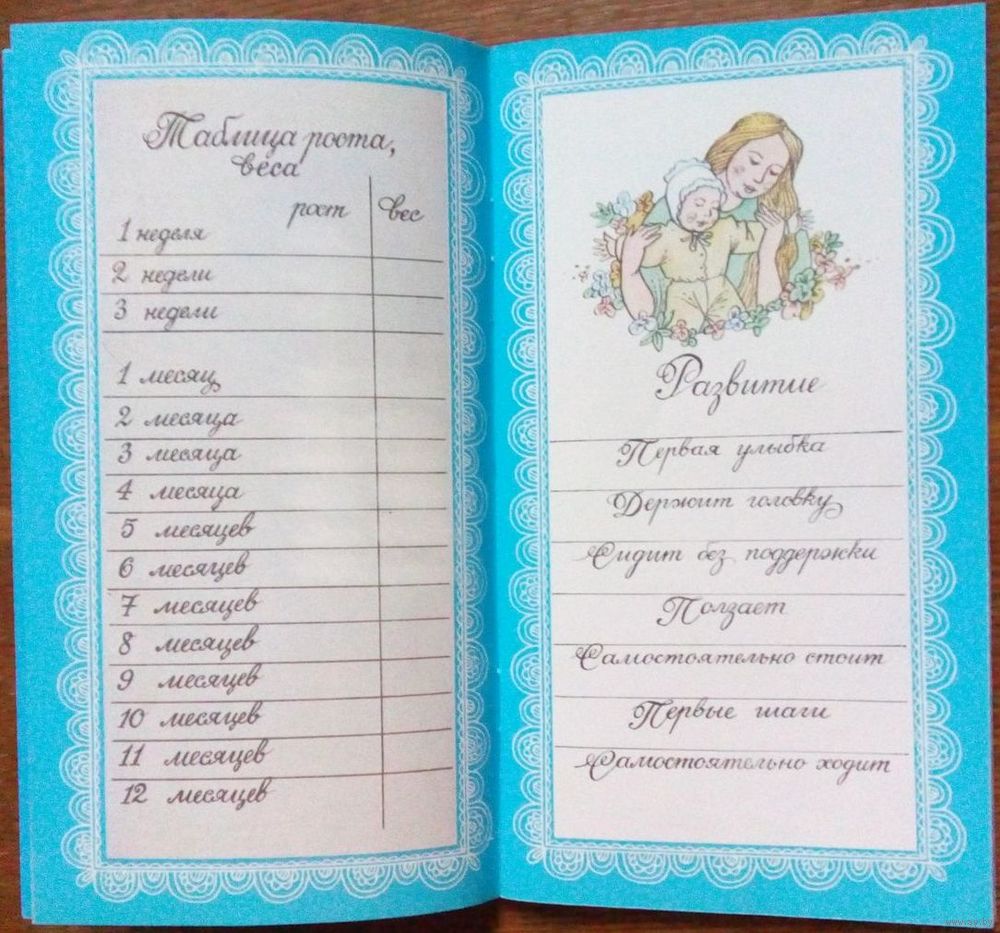 Таблица роста,
веса
рост вес
1 неделя
2 недели
3 недели
1 месяц
2 месяца
3 месяца
4 месяца
5 месяцев
6 месяцев
7 месяцев
8 месяцев
9 месяцев
10 месяцев
11 месяцев
12 месяцев
Развитие
Первая улыбка
Держит головку
Сидит без поддержки
Ползает
Самостоятельно стоит
Первые шаги
Самостоятельно ходит